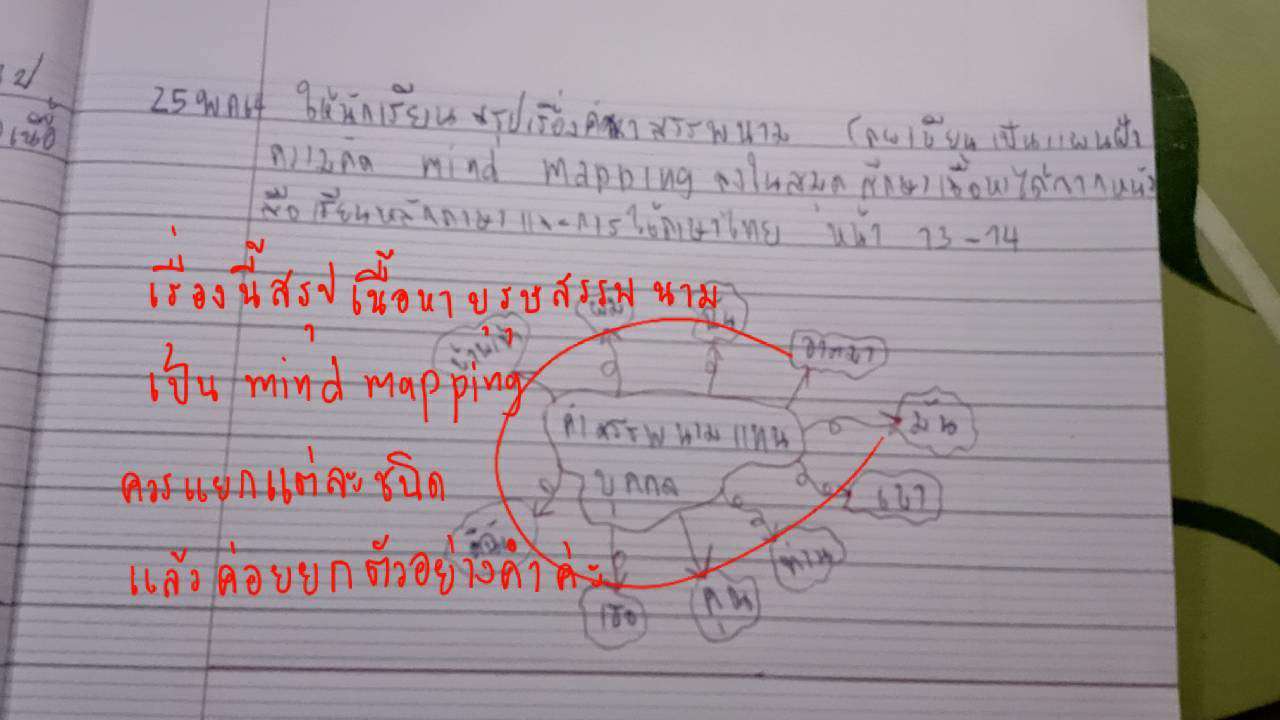 25 พ.ค.64 ให้นักเรียน สรุปเรื่องคำ สรรพนาม โดยเขียน เป็นแผนผัง
ความคิด mind mapping ลงในสมุด ศึกษาเนื้อหาได้จากหนัง
สือ เรียนหลักภาษา และการใช้ภาษาไทย หน้า 13-14
เรื่องนี้สรุปเนื้อหาบุรุษสรรพนาม
เป็น mind mapping
ควรแยกแต่ละชนิด
แล้วค่อยยกตัวอย่างคำค่ะ
ข้าพเจ้า
ผม
ฉัน
อาตมา
มัน
คำสรรพนามแทน
บุคคล
เขา
ท่าน
คุณ
เธอ